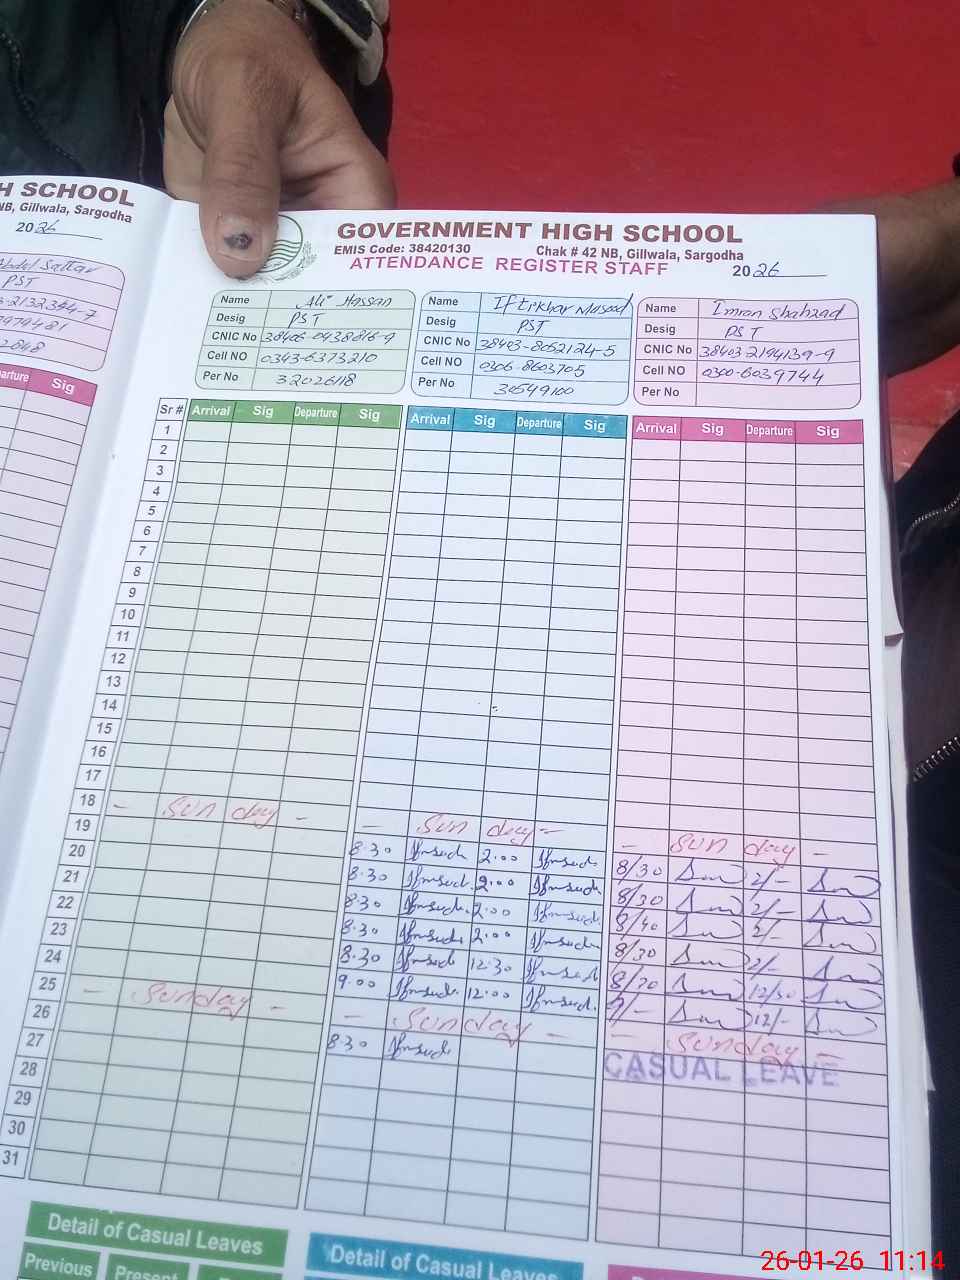 H SCHOOL
NB, Gillwala, Sargodha
2026
Abdul Sattar
PST
3-2132354-7
7979481
2848
arture Sig
GOVERNMENT HIGH SCHOOL
EMIS Code: 38420130 Chak # 42 NB, Gillwala, Sargodha
ATTENDANCE REGISTER STAFF 2026
Name Ali Hassan
Desig PST
CNIC No 38406-0438816-9
Cell NO 0343-6373210
Per No 32026118
Name Iftikhar Masood
Desig PST
CNIC No 38403-8062124-5
Cell NO 0306-8603705
Per No 30549100
Name Imran Shahzad
Desig PST
CNIC No 38403-2194139-9
Cell NO 0300-6039744
Per No
Sr # Arrival Sig Departure Sig Arrival Sig Departure Sig Arrival Sig Departure Sig
1
2
3
4
5
6
7
8
9
10
11
12
13
14
15
16
17
18 - Sunday -
19 - Sunday - - Sunday -
20 8.30 2.00 8/30 2/-
21 8.30 2.00 8/30 2/-
22 8.30 2.00 8/40 2/-
23 8.30 2.00 8/30 2/-
24 8.30 12.30 12/30
25 - Sunday - 9.00 12.00 9/- 12/-
26 - Sunday - - Sunday -
27 8.30 CASUAL LEAVE
28
29
30
31
Detail of Casual Leaves
Previous Present
Detail of Casual Leaves
26-01-26 11:14